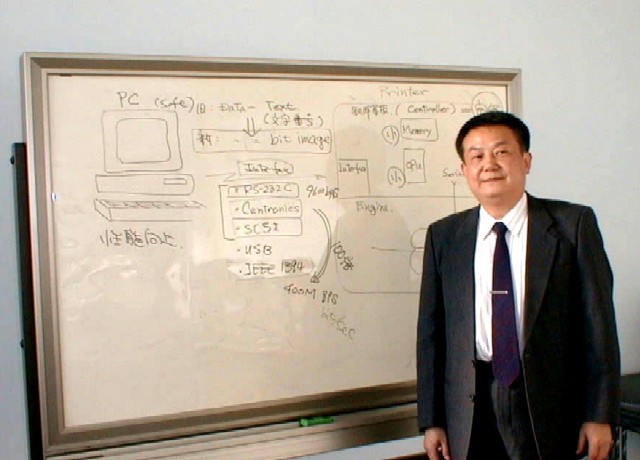 PC (Safe) 旧: DATA - Text
(文字番号)
新: - = bit image
Interface
RS-232C 9600 bps
・Centronics
・SCSI
・USB
・IEEE 1394
100倍
400M BPS
bit/sec
性能向上
Printer
(Controller) =
Memory
CPU
Interface
Engine.